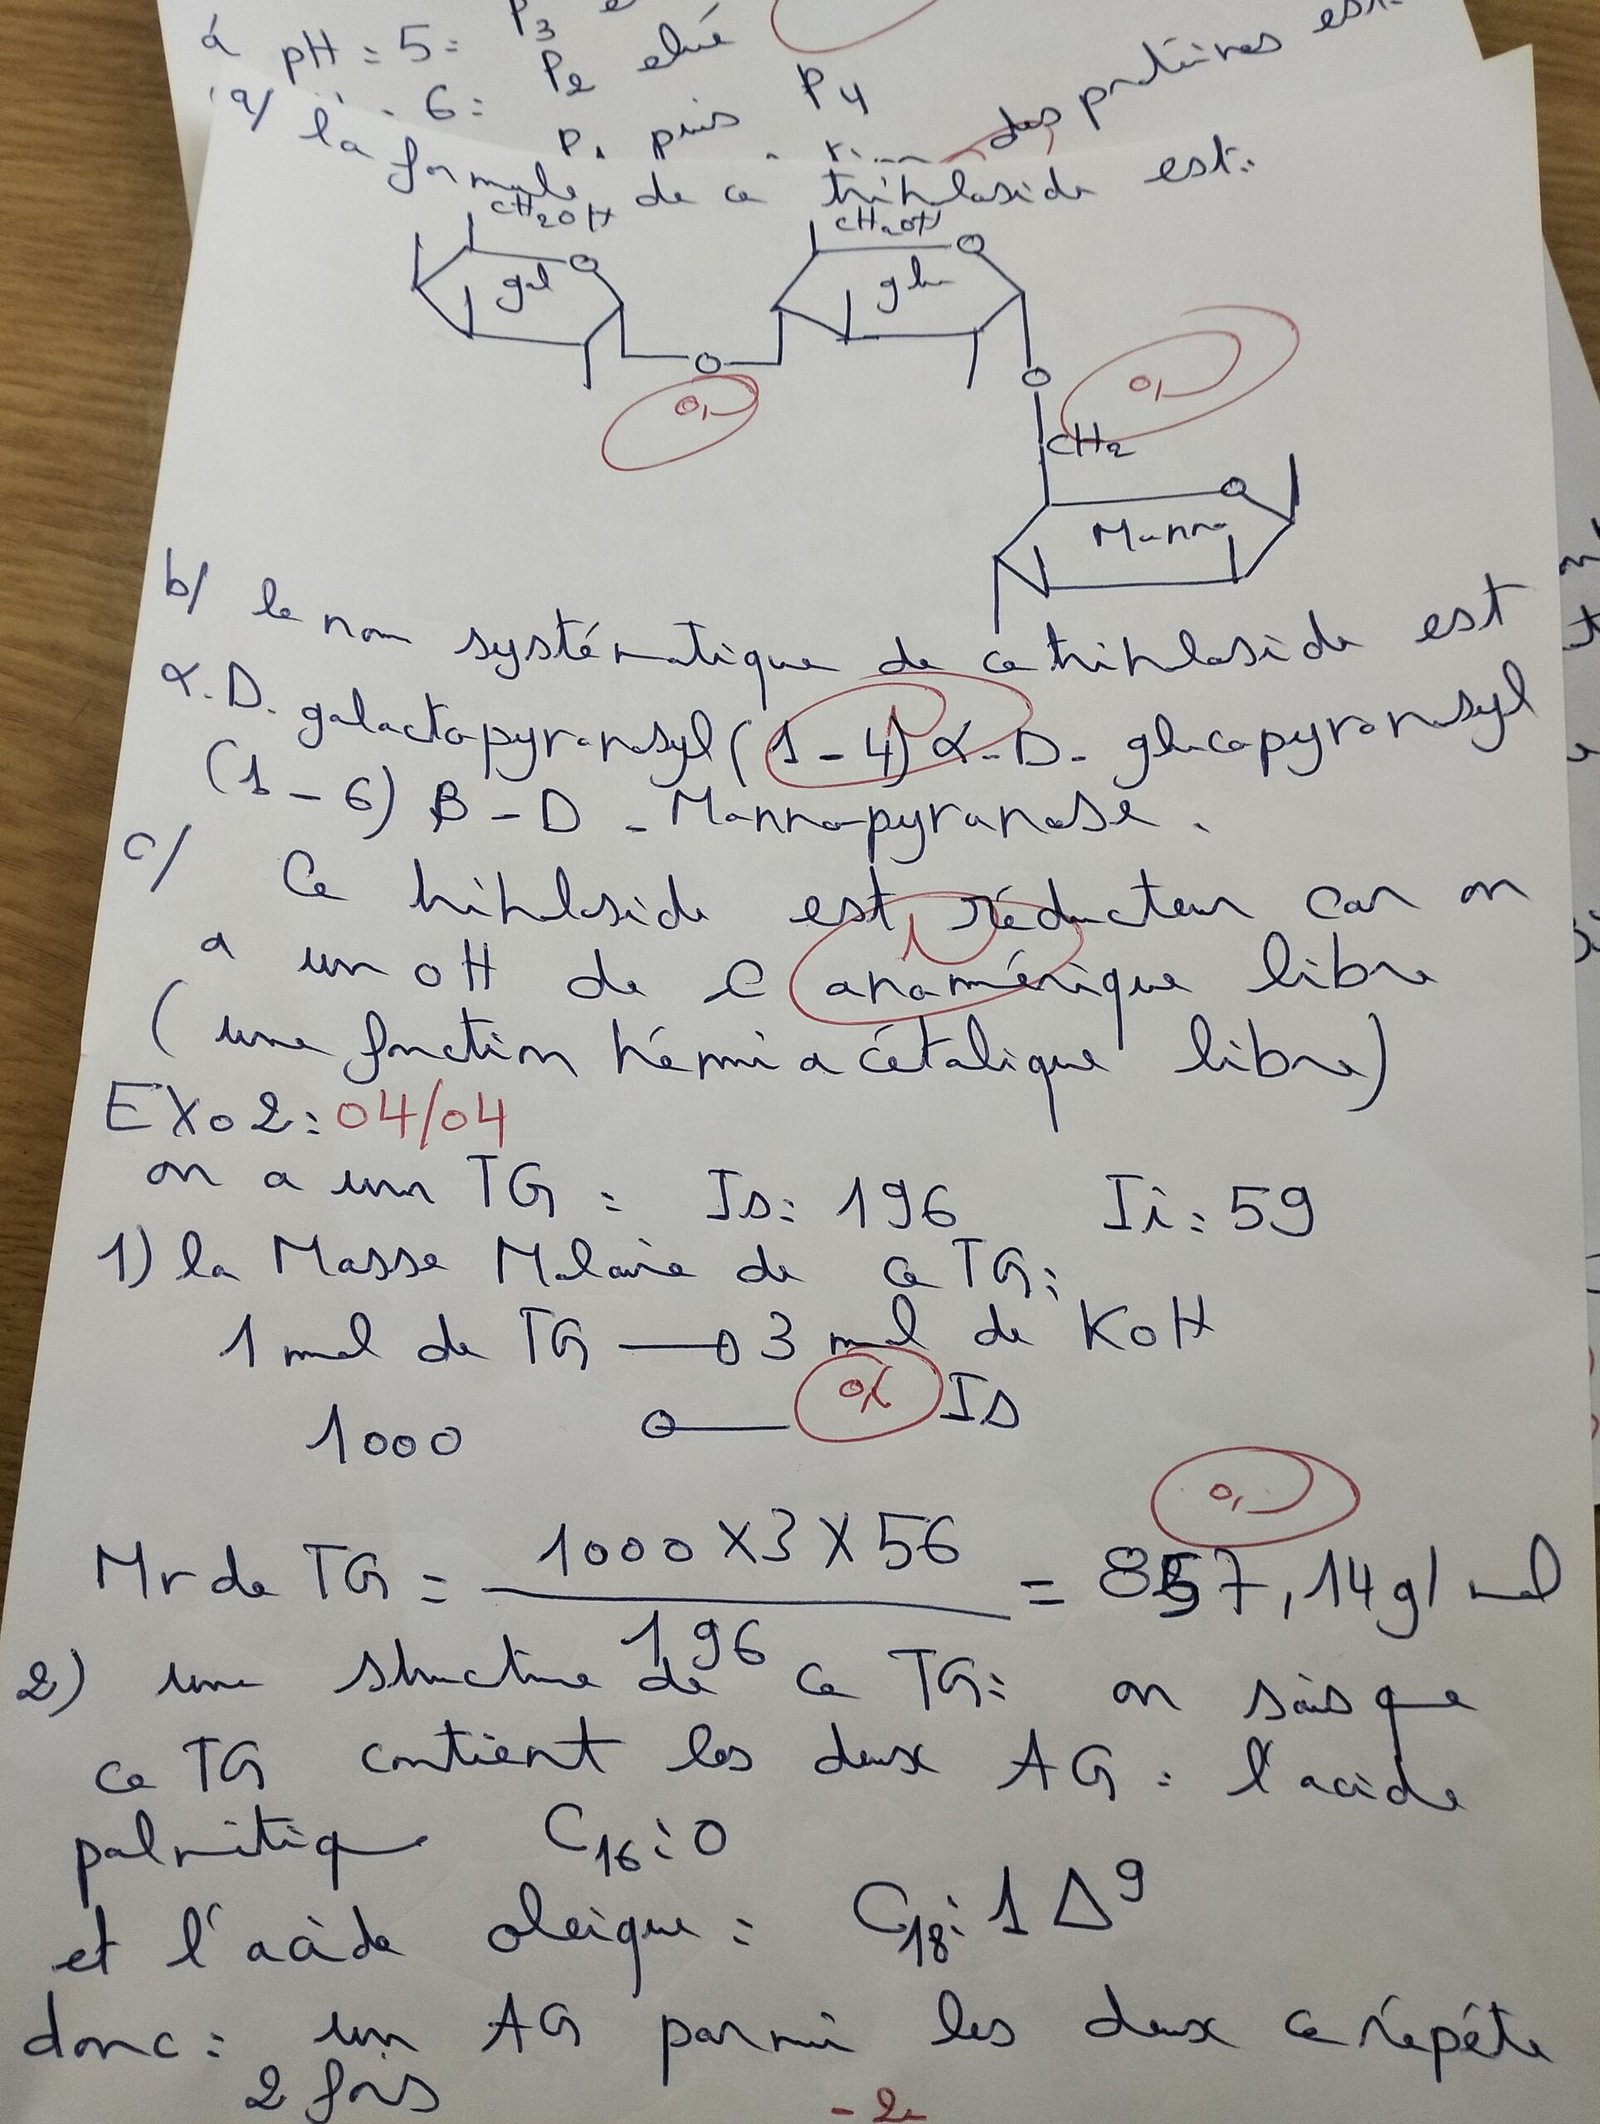 à pH = 5 = P3
P2 elué
6 = P1 puis P4
des protéines est
a/ la formule de ce triholoside est:
CH2OH CH2OH
O O
gal glu
O O
0,5 0,5
CH2
O
Manno
b/ le nom systématique de ce triholoside est
α.D. galactopyranosyl (1-4) α-D- glucopyranosyl
1
(1-6) B-D-Mannopyranose.
c/ Ce triholoside est réducteur car on
1
a un OH de C anomérique libre
(une fonction hémiacétalique libre)
EXo2: 04/04
on a un TG: Is: 196 Ii: 59
1) la Masse Molaire de ce TG:
1 mol de TG → 3 mol de KOH
1000 Is
0,5
Mr de TG = 1000 X 3 X 56 / 196 = 857,14 g/mol
2) une structure de ce TG: on sais que
ce TG contient les deux AG: l'acide
palmitique C16:0
et l'acide oleique: C18:1 Δ9
donc: un AG parmi les deux ce répéte
2 fois
-2-